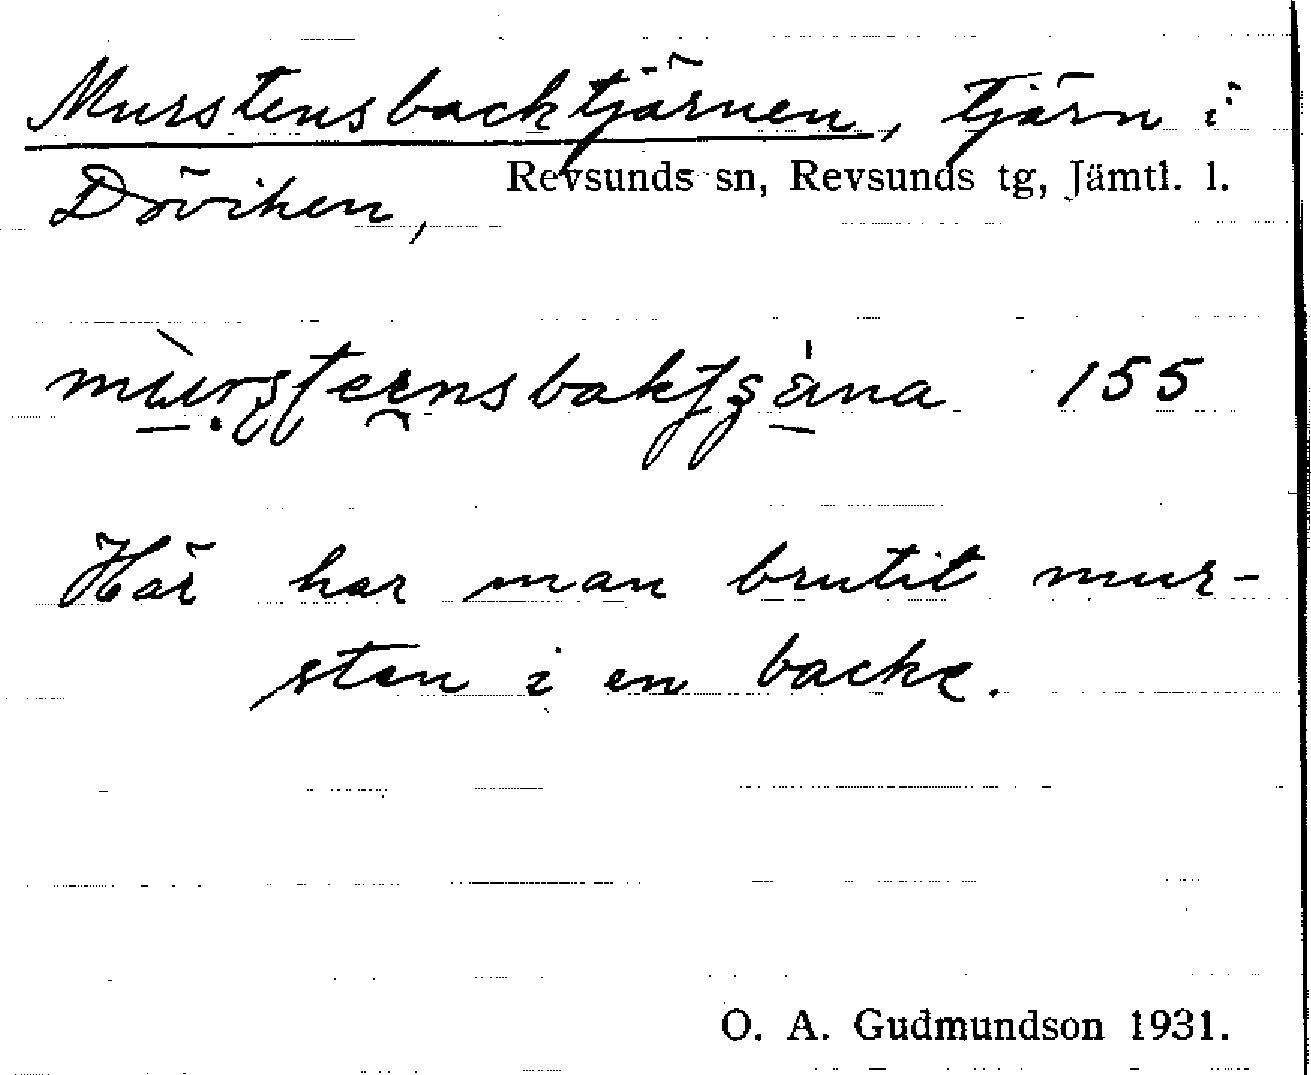 Murstensbacktjärnen, tjärn i
Döviken, Revsunds sn, Revsunds tg, Jämtl. l.
155
Här har man brutit mur-
sten i en backe.
O. A. Gudmundson 1931.